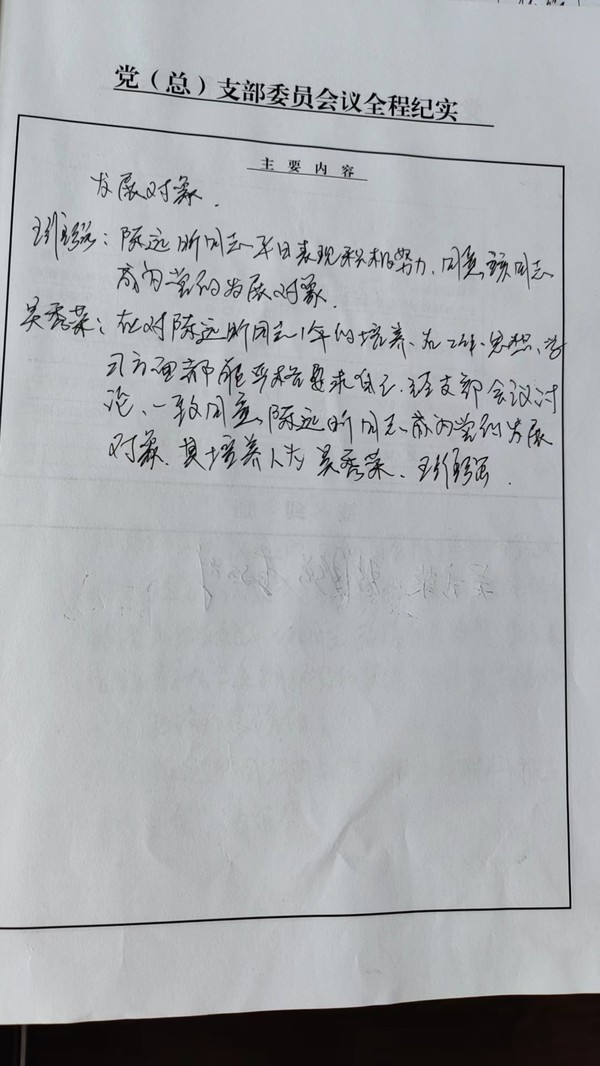 党（总）支部委员会议全程纪实
主 要 内 容
发展对象.
：陈远昕同志平日表现积极努力、同意该同志
成为党的发展对象.
吴秀荣：在对陈远昕同志1年的培养、在工作、思想、学
习方面都能严格要求自己.经支部会议讨
论、一致同意陈远昕同志成为党的发展
对象.其培养人为吴秀荣、